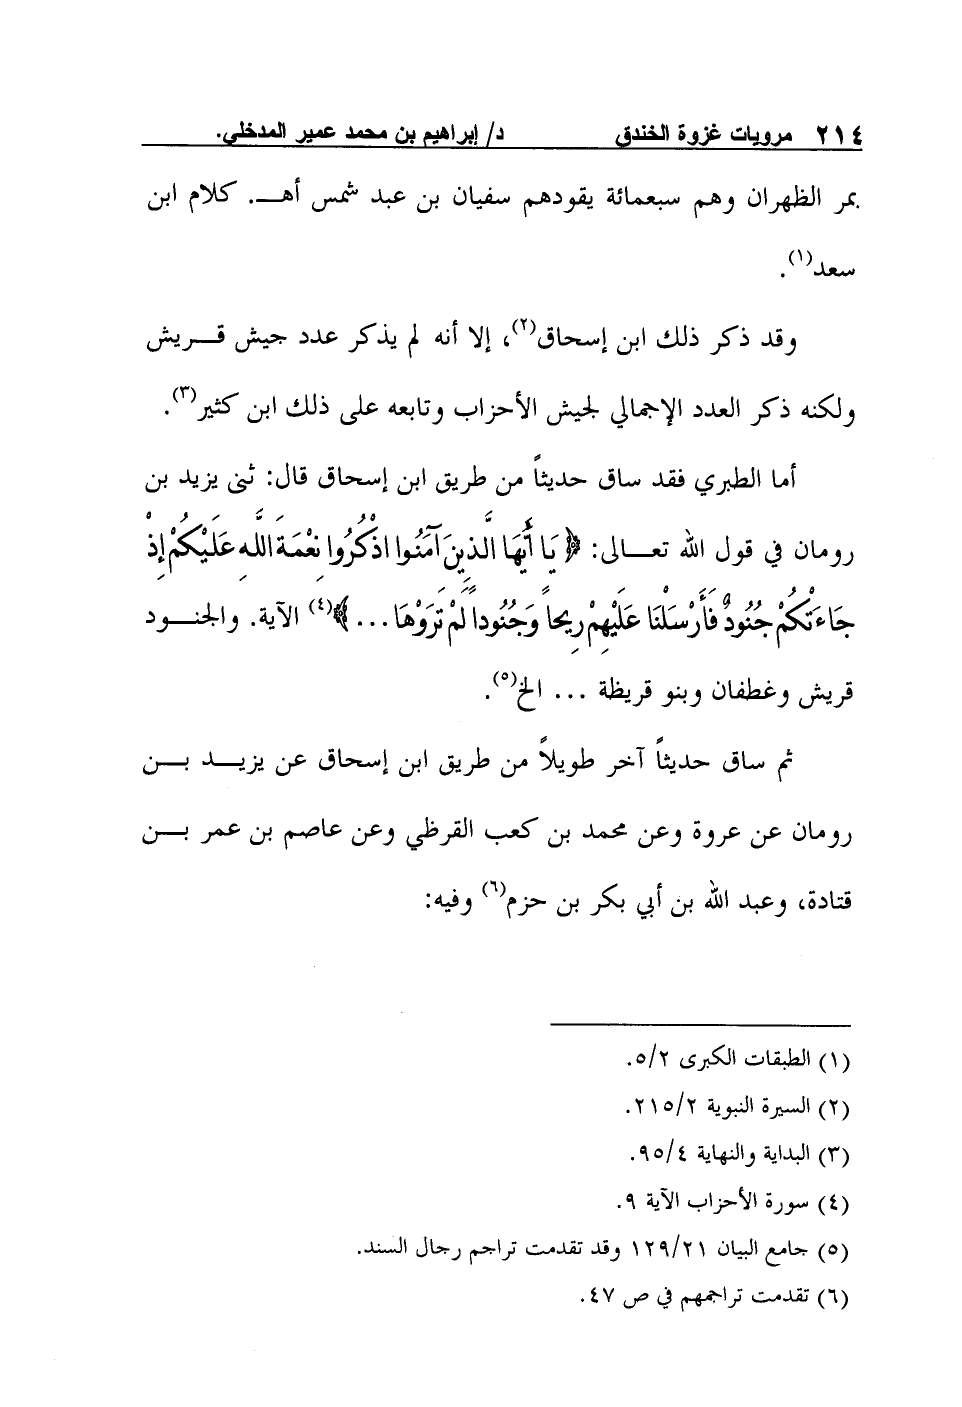 ٢١٤ مرويات غزوة الخندق د/ إبراهيم بن محمد عمير المدخلي.
بمر الظهران وهم سبعمائة يقودهم سفيان بن عبد شمس أهـ. كلام ابن
سعد(١).
وقد ذكر ذلك ابن إسحاق(٢)، إلا أنه لم يذكر عدد جيش قريش
ولكنه ذكر العدد الإجمالي لجيش الأحزاب وتابعه على ذلك ابن كثير(٣).
أما الطبري فقد ساق حديثاً من طريق ابن إسحاق قال: ثنى يزيد بن
رومان في قول الله تعالى: ﴿يَا أَيُّهَا الَّذِينَ آمَنُوا اذْكُرُوا نِعْمَةَ اللَّهِ عَلَيْكُمْ إِذْ
جَاءَتْكُمْ جُنُودٌ فَأَرْسَلْنَا عَلَيْهِمْ رِيحاً وَجُنُوداً لَمْ تَرَوْهَا...﴾(٤) الآية. والجنود
قريش وغطفان وبنو قريظة ... الخ(٥).
ثم ساق حديثاً آخر طويلاً من طريق ابن إسحاق عن يزيد بن
رومان عن عروة وعن محمد بن كعب القرظي وعن عاصم بن عمر بن
قتادة، وعبد الله بن أبي بكر بن حزم(٦) وفيه:
(١) الطبقات الكبرى ٥/٢.
(٢) السيرة النبوية ٢١٥/٢.
(٣) البداية والنهاية ٩٥/٤.
(٤) سورة الأحزاب الآية ٩.
(٥) جامع البيان ١٢٩/٢١ وقد تقدمت تراجم رجال السند.
(٦) تقدمت تراجمهم في ص ٤٧.